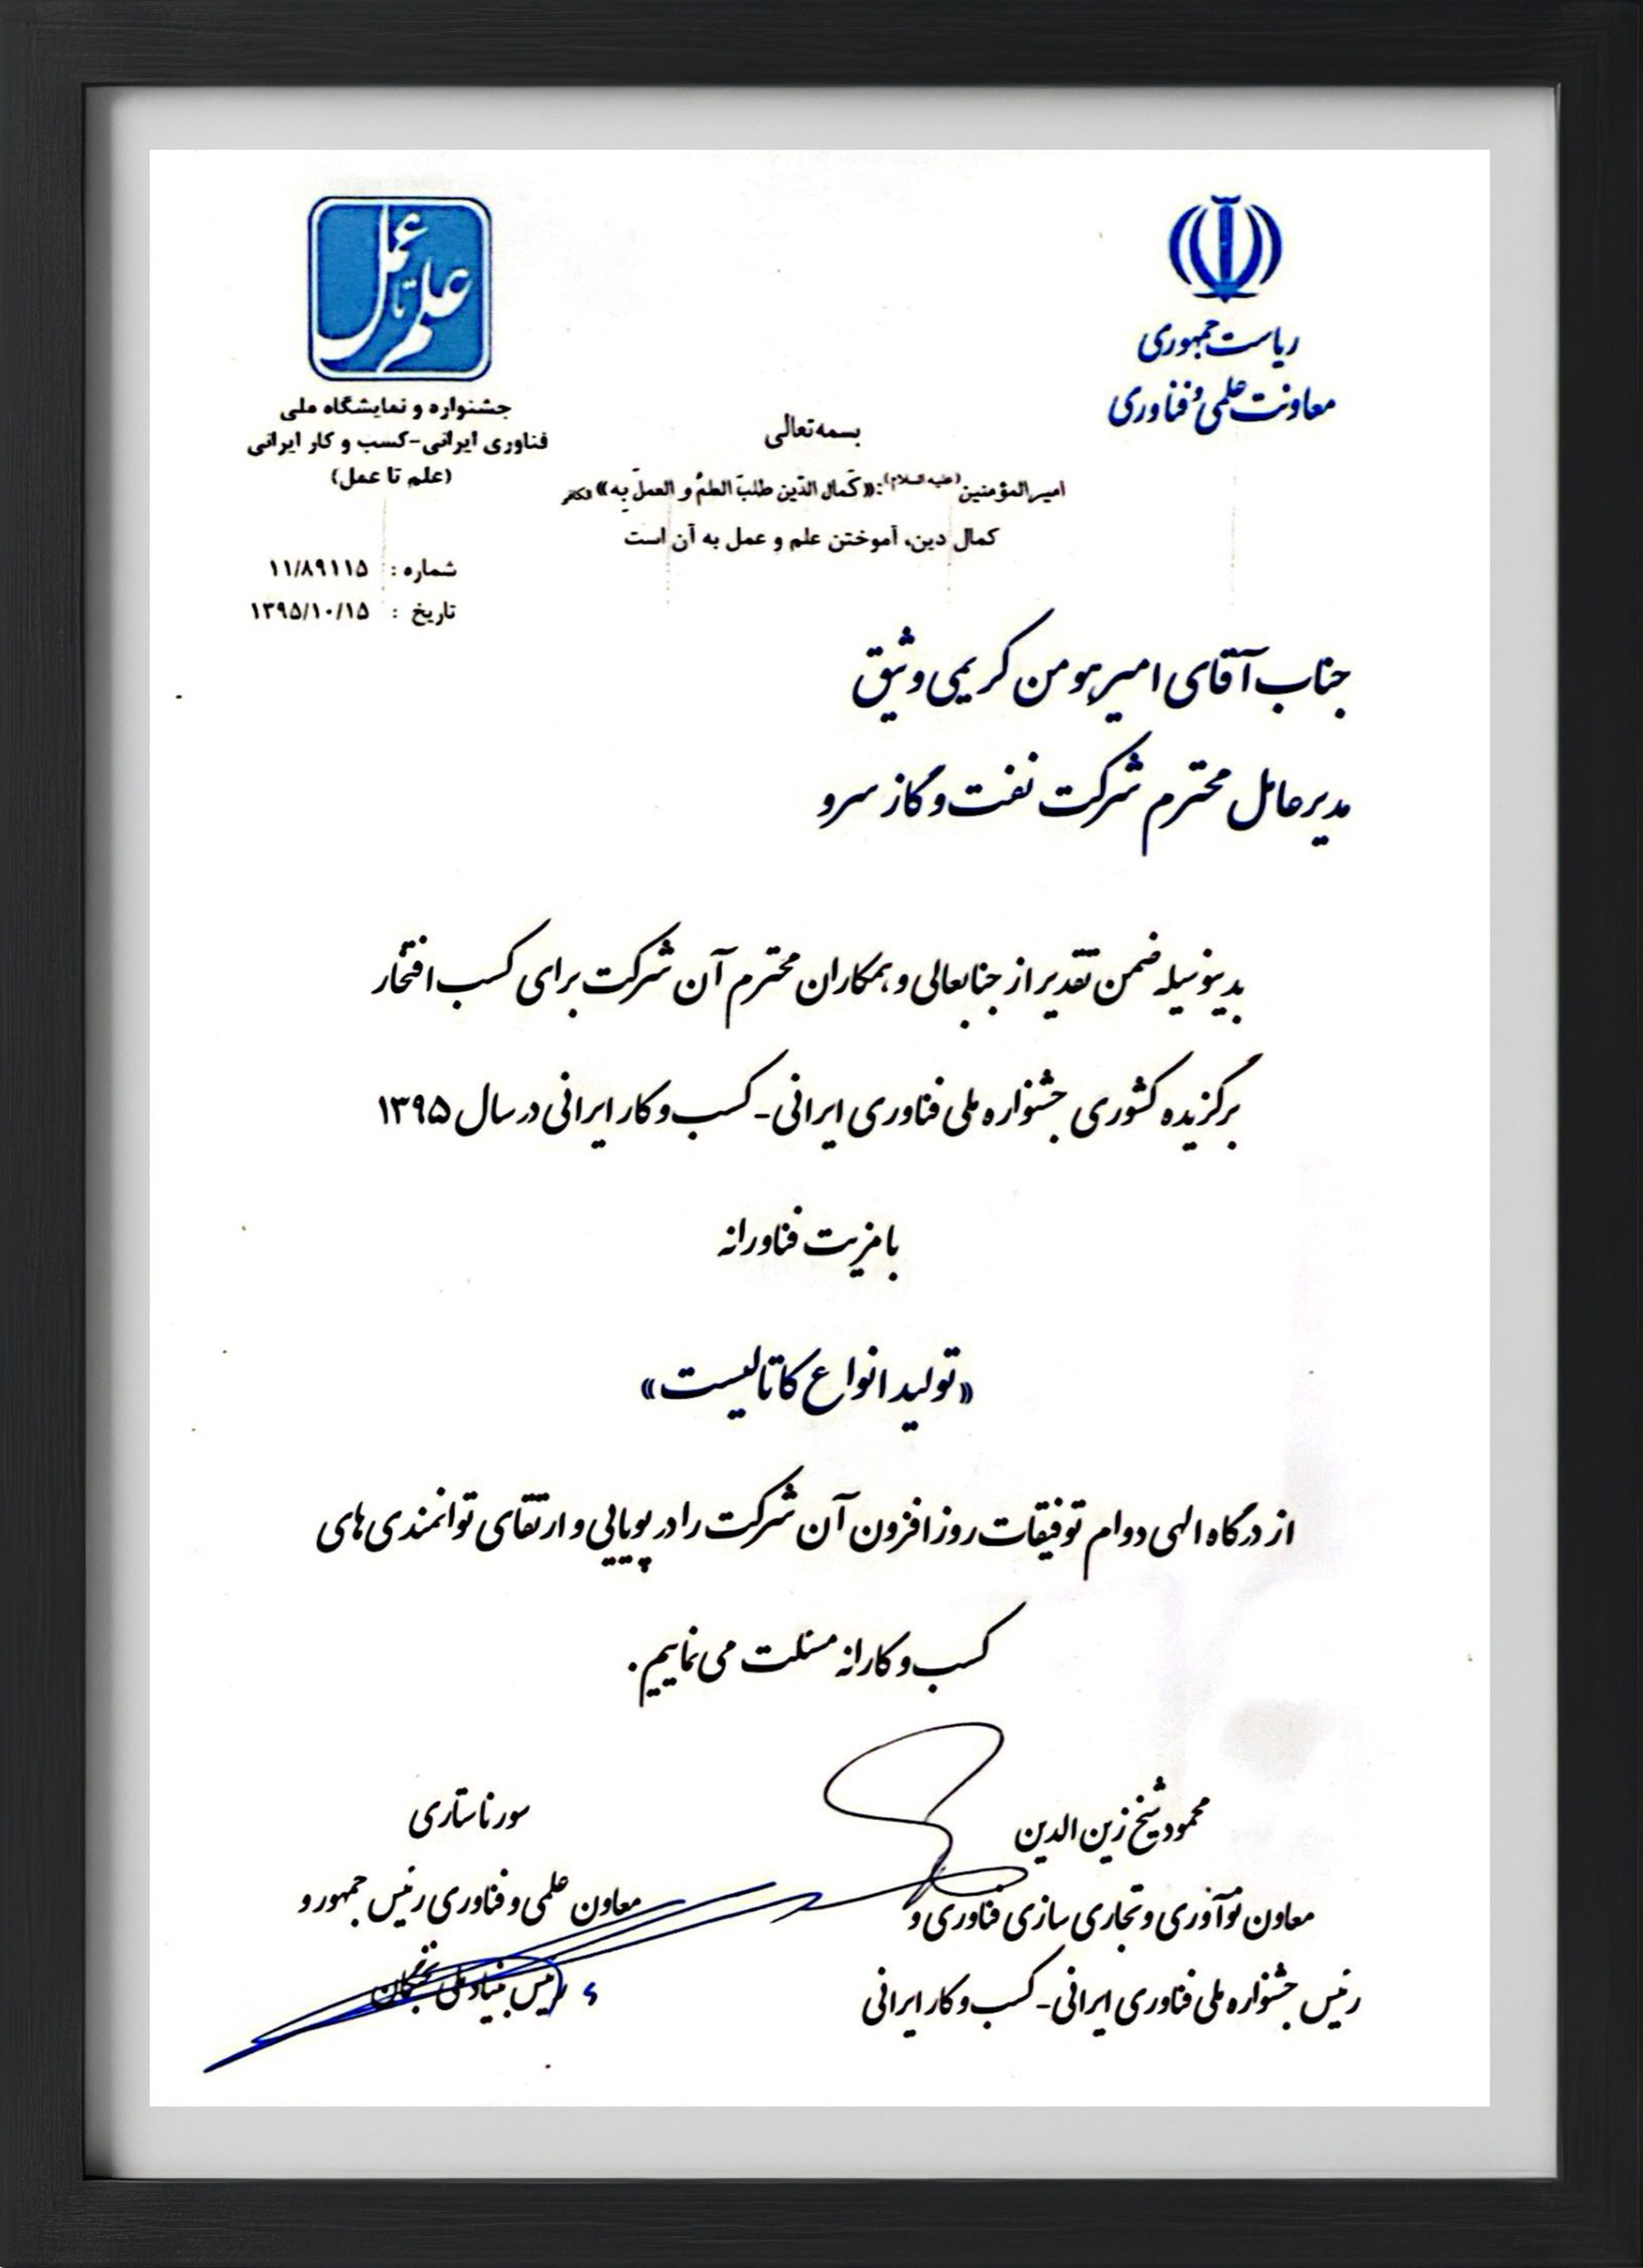 علم تا عمل
ریاست جمهوری
معاونت علمی و فناوری
جشنواره و نمایشگاه ملی
فناوری ایرانی-کسب و کار ایرانی
(علم تا عمل)
بسمه‌تعالی
امیرالمؤمنین(علیه السلام):«کَمال الدّین طلبَ العلمُ و العملَ بِه»
کمال دین، آموختن علم و عمل به آن است
شماره : ۱۱/۸۹۱۱۵
تاریخ : ۱۳۹۵/۱۰/۱۵
جناب آقای امیرهومن کریمی وثیق
مدیرعامل محترم شرکت نفت و گاز سرو
بدینوسیله ضمن تقدیر از جنابعالی و همکاران محترم آن شرکت برای کسب افتخار
برگزیده کشوری جشنواره ملی فناوری ایرانی-کسب و کار ایرانی در سال ۱۳۹۵
با مزیت فناورانه
«تولید انواع کاتالیست»
از درگاه الهی دوام توفیقات روزافزون آن شرکت را در پویایی و ارتقای توانمندی های
کسب و کارانه مسئلت می نماییم.
محمود شیخ زین الدین
معاون نوآوری و تجاری سازی فناوری و
رئیس جشنواره ملی فناوری ایرانی-کسب و کار ایرانی
سورنا ستاری
معاون علمی و فناوری رئیس جمهور و
رئیس بنیاد ملی نخبگان